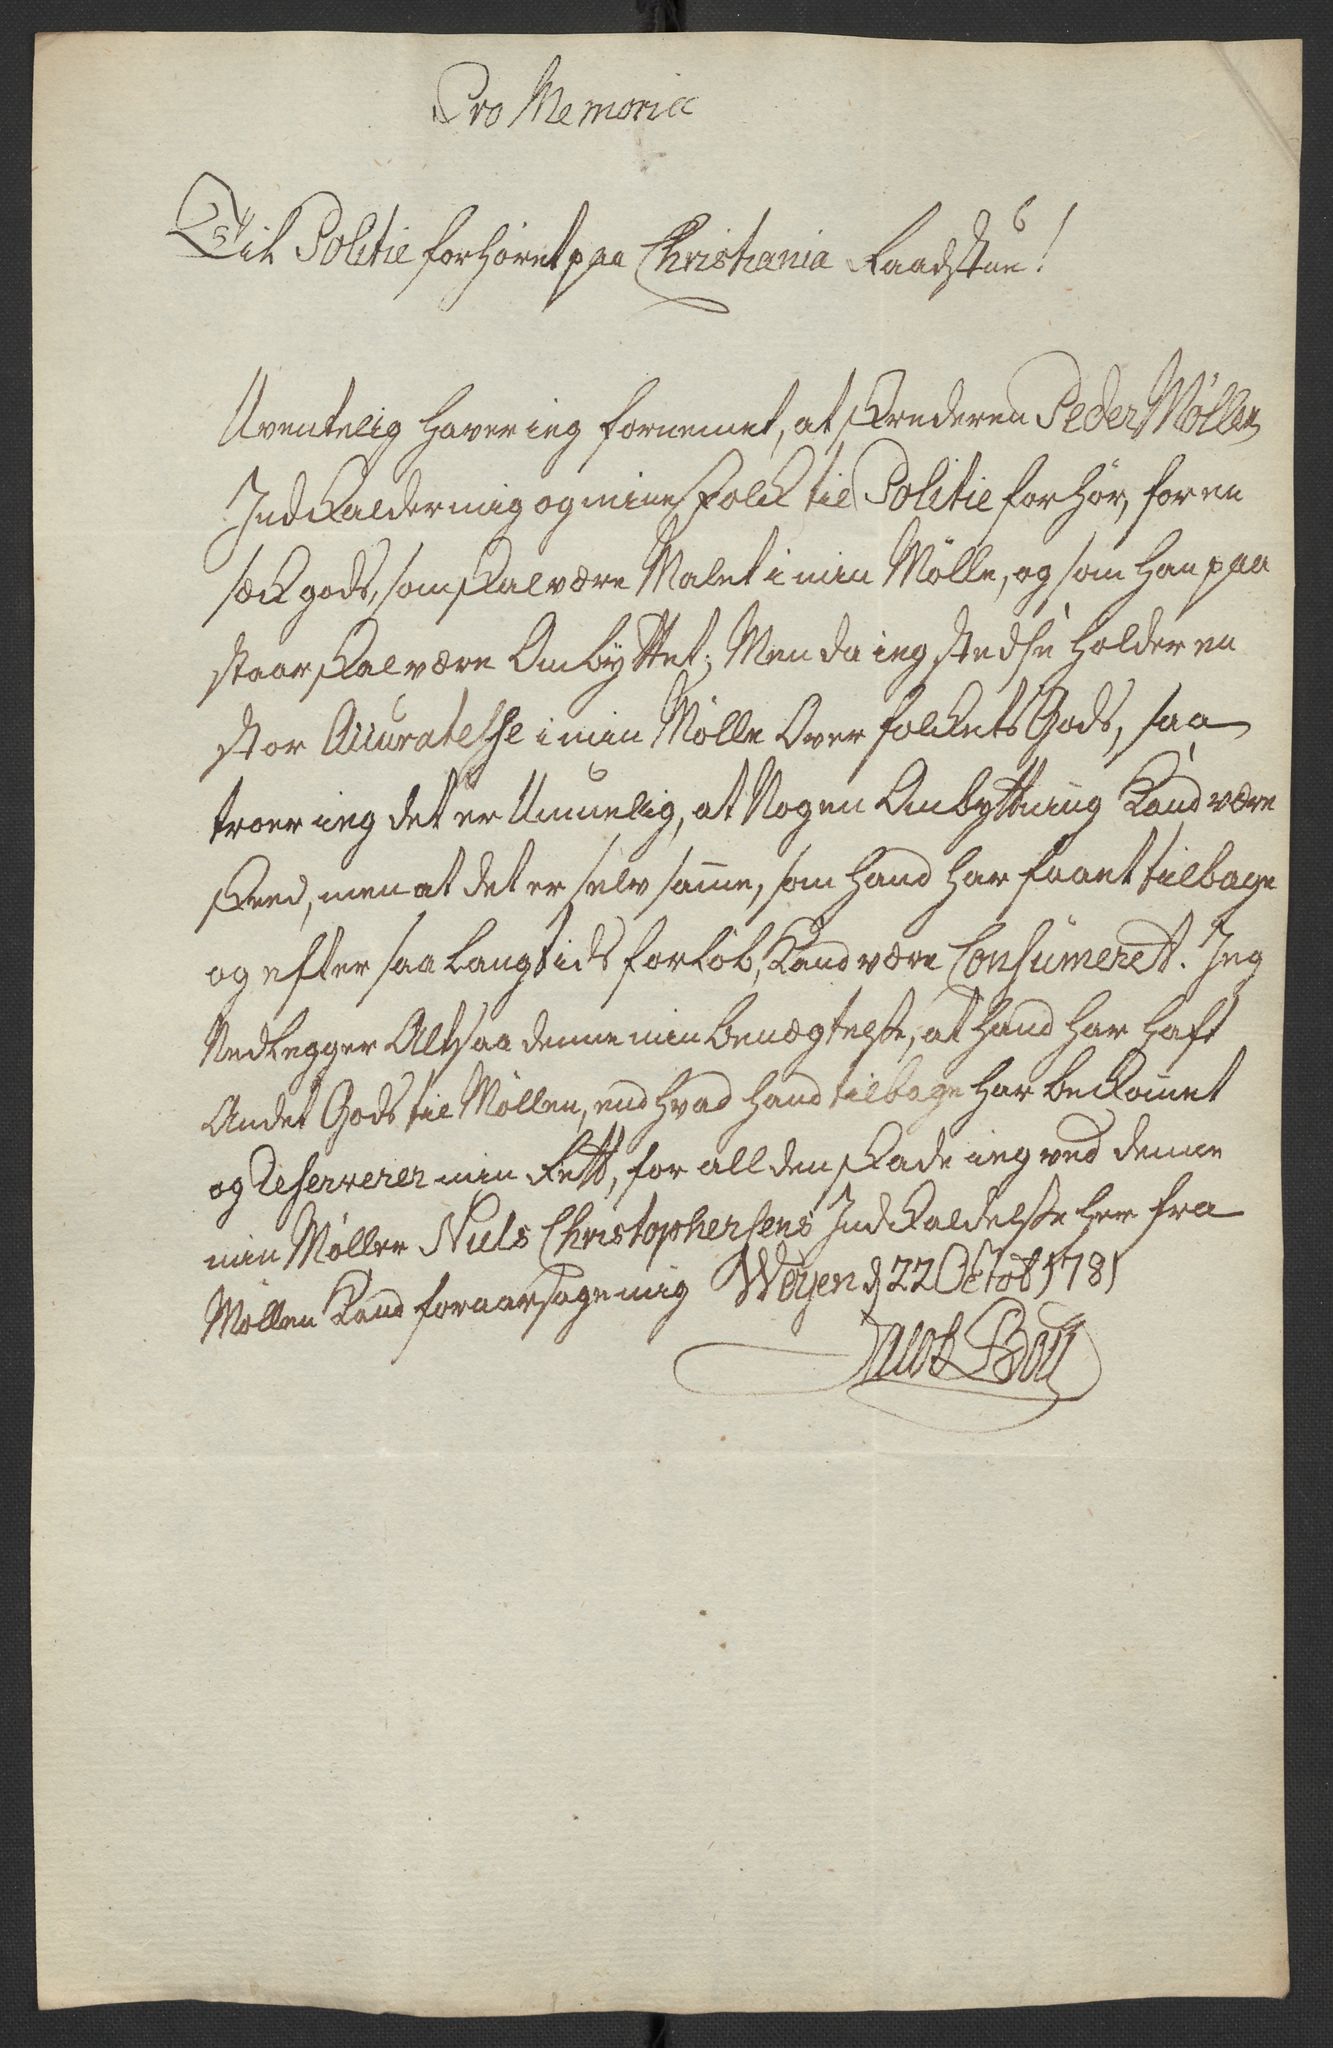 Pro Memoria
Til Politie forhöret paa Christiania Raadstue!
Uventelig haver ieg fornemet, at skrederen Peder Möller
Indkalder mig og mine Folck til Politie forhör, for en
sæk gods, som skal være Malet i min Mölle, og som han paa
staar skal være Ombyttet; Men da ieg stedse holder en
stor Accuratesse i min Mölle over folckets Gods, saa
troer ieg det er Umuelig, at Nogen Ombyttning Kand være
skeed, men at det er selv samme, som hand har faaet tilbage
og efter saa lang tids forlöb, Kand være Consumeret. Jeg
Nedlegger Altsaa denne min benægtelse, at hand har haft
Andet Gods til Möllen, end hvad hand tilbage har bekommet
og Reserverer min Rett, for all den skade ieg ved denne
min Möller Niels Christophersens Indkaldelse her fra
Möllen Kand foraarsage mig Weyen d 22 Octob 1781
Jacob Boll